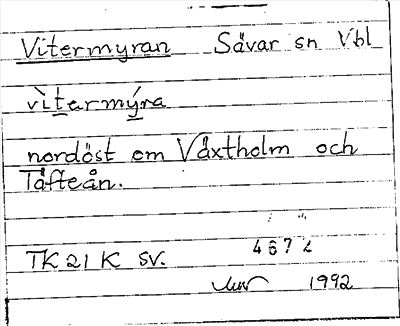 Vitermyran Sävar sn Vbl
vìtarmýra
nordöst om Växtholm och
Tåfteån.
4672
TK 21 K SV.
1992